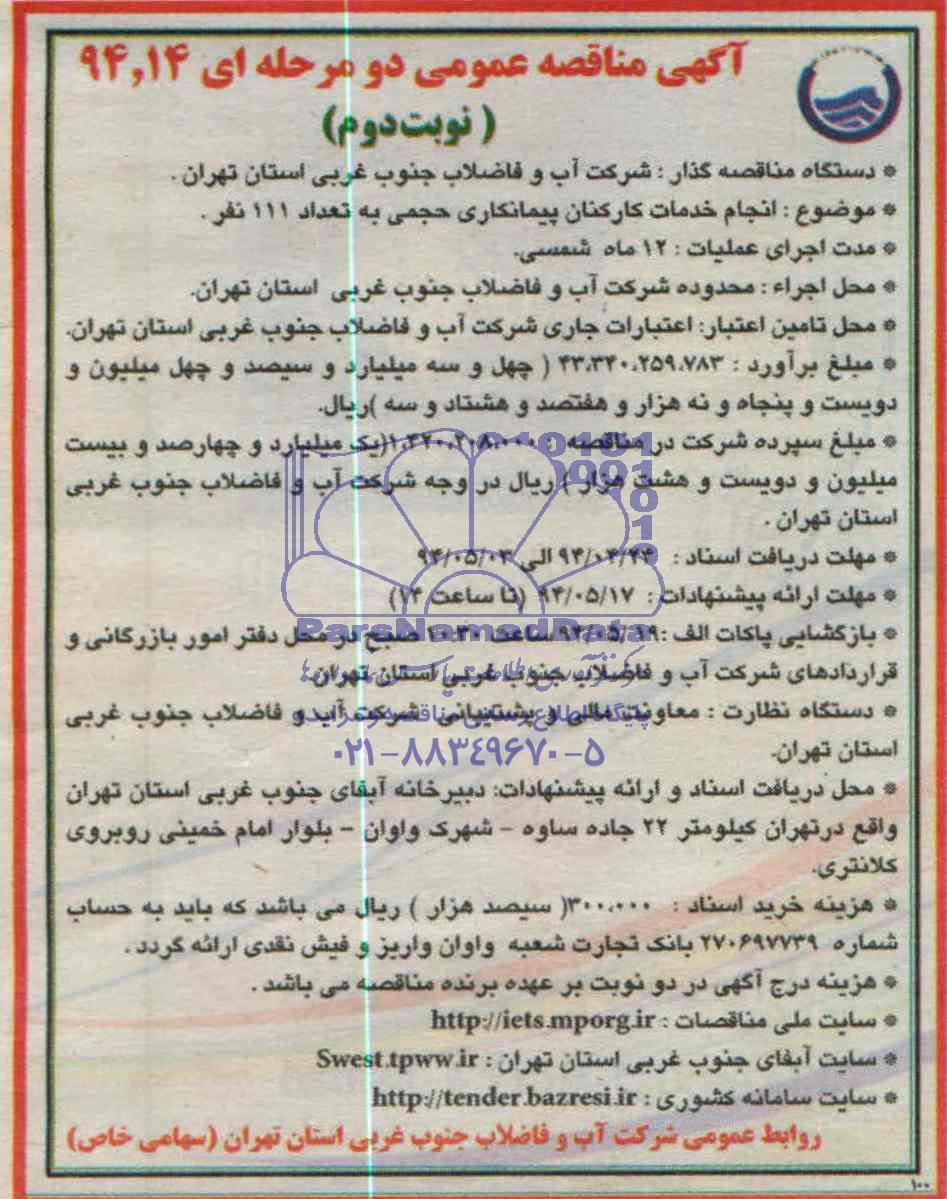 آگهی مناقصه عمومی دو مرحله ای ۹۴,۱۴
(نوبت دوم)
* دستگاه مناقصه گذار : شرکت آب و فاضلاب جنوب غربی استان تهران .
* موضوع : انجام خدمات کارکنان پیمانکاری حجمی به تعداد ۱۱۱ نفر .
* مدت اجرای عملیات : ۱۲ ماه شمسی.
* محل اجراء : محدوده شرکت آب و فاضلاب جنوب غربی استان تهران.
* محل تامین اعتبار: اعتبارات جاری شرکت آب و فاضلاب جنوب غربی استان تهران.
* مبلغ برآورد : ۴۳،۳۴۰،۲۵۹،۷۸۳ ( چهل و سه میلیارد و سیصد و چهل میلیون و
دویست و پنجاه و نه هزار و هفتصد و هشتاد و سه )ریال.
* مبلغ سپرده شرکت در مناقصه : ۱،۴۲۰،۲۰۸،۰۰۰(یک میلیارد و چهارصد و بیست
میلیون و دویست و هشت هزار ) ریال در وجه شرکت آب و فاضلاب جنوب غربی
استان تهران .
* مهلت دریافت اسناد : ۹۴/۰۴/۲۴ الی ۹۴/۰۵/۰۳
* مهلت ارائه پیشنهادات : ۹۴/۰۵/۱۷ (تا ساعت ۱۴)
* بازگشایی پاکات الف :۹۴/۰۵/۱۹ ساعت ۱۰:۳۰ صبح در محل دفتر امور بازرگانی و
قراردادهای شرکت آب و فاضلاب جنوب غربی استان تهران.
* دستگاه نظارت : معاونت مالی و پشتیبانی شرکت آب و فاضلاب جنوب غربی
استان تهران.
* محل دریافت اسناد و ارائه پیشنهادات: دبیرخانه آبفای جنوب غربی استان تهران
واقع درتهران کیلومتر ۲۲ جاده ساوه - شهرک واوان - بلوار امام خمینی روبروی
کلانتری.
* هزینه خرید اسناد : ۳۰۰،۰۰۰( سیصد هزار ) ریال می باشد که باید به حساب
شماره ۲۷۰۶۹۷۷۳۹ بانک تجارت شعبه واوان واریز و فیش نقدی ارائه گردد .
* هزینه درج آگهی در دو نوبت بر عهده برنده مناقصه می باشد .
* سایت ملی مناقصات : http://iets.mporg.ir
* سایت آبفای جنوب غربی استان تهران : Swest.tpww.ir
* سایت سامانه کشوری : http://tender.bazresi.ir
روابط عمومی شرکت آب و فاضلاب جنوب غربی استان تهران (سهامی خاص)
۱۰۰
ParsNamadData
پایگاه اطلاع رسانی مناقصه و مزایده
۰۲۱-۸۸۳۴۹۶۷۰-۵